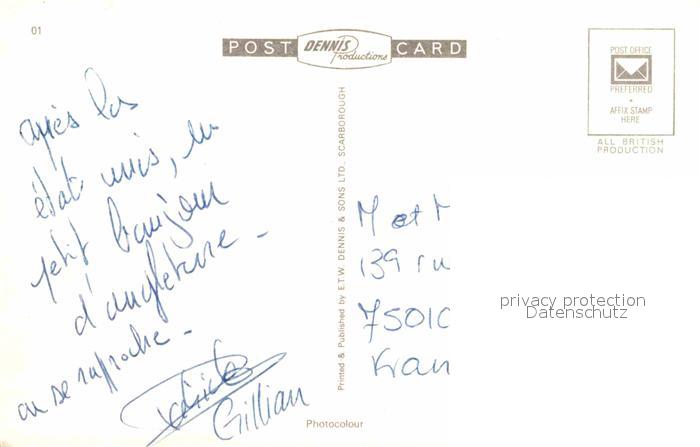 01
POST DENNIS Productions CARD
POST OFFICE
PREFERRED
AFFIX STAMP
HERE
ALL BRITISH
PRODUCTION
après les
états unis, un
petit bonjour
d'angleterre -
on se rapproche -
Gillian
Printed & Published by E.T.W. DENNIS & SONS LTD., SCARBOROUGH
M et M
139 ru
7501C
Fran
privacy protection
Datenschutz
Photocolour